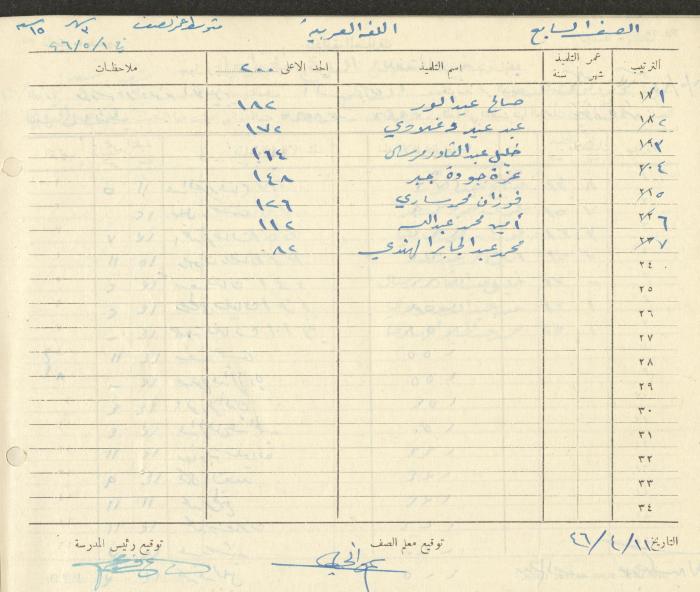 الصف السابع اللغة العربية متوسط عمر الصف
٤٦/٥/١٤
الترتيب عمر التلميذ شهر سنة اسم التلميذ الحد الاعلى ٢٠٠ ملاحظات
١ صالح عبد النور ١٨٢
٢ عبد عيد دغلاوي ١٧٢
٣ خليل عبد القادر مرسال ١٦٤
٤ عزة جودة جبر ١٤٨
٥ فوزان محمد ساري ١٢٦
٦ أمين محمد عبد الله ١١٢
٧ محمد عبد الجابر الهندي ٨٢
٢٤
٢٥
٢٦
٢٧
٢٨
٢٩
٣٠
٣١
٣٢
٣٣
٣٤
التاريخ ٤٦/٤/١١ توقيع معلم الصف توقيع رئيس المدرسة